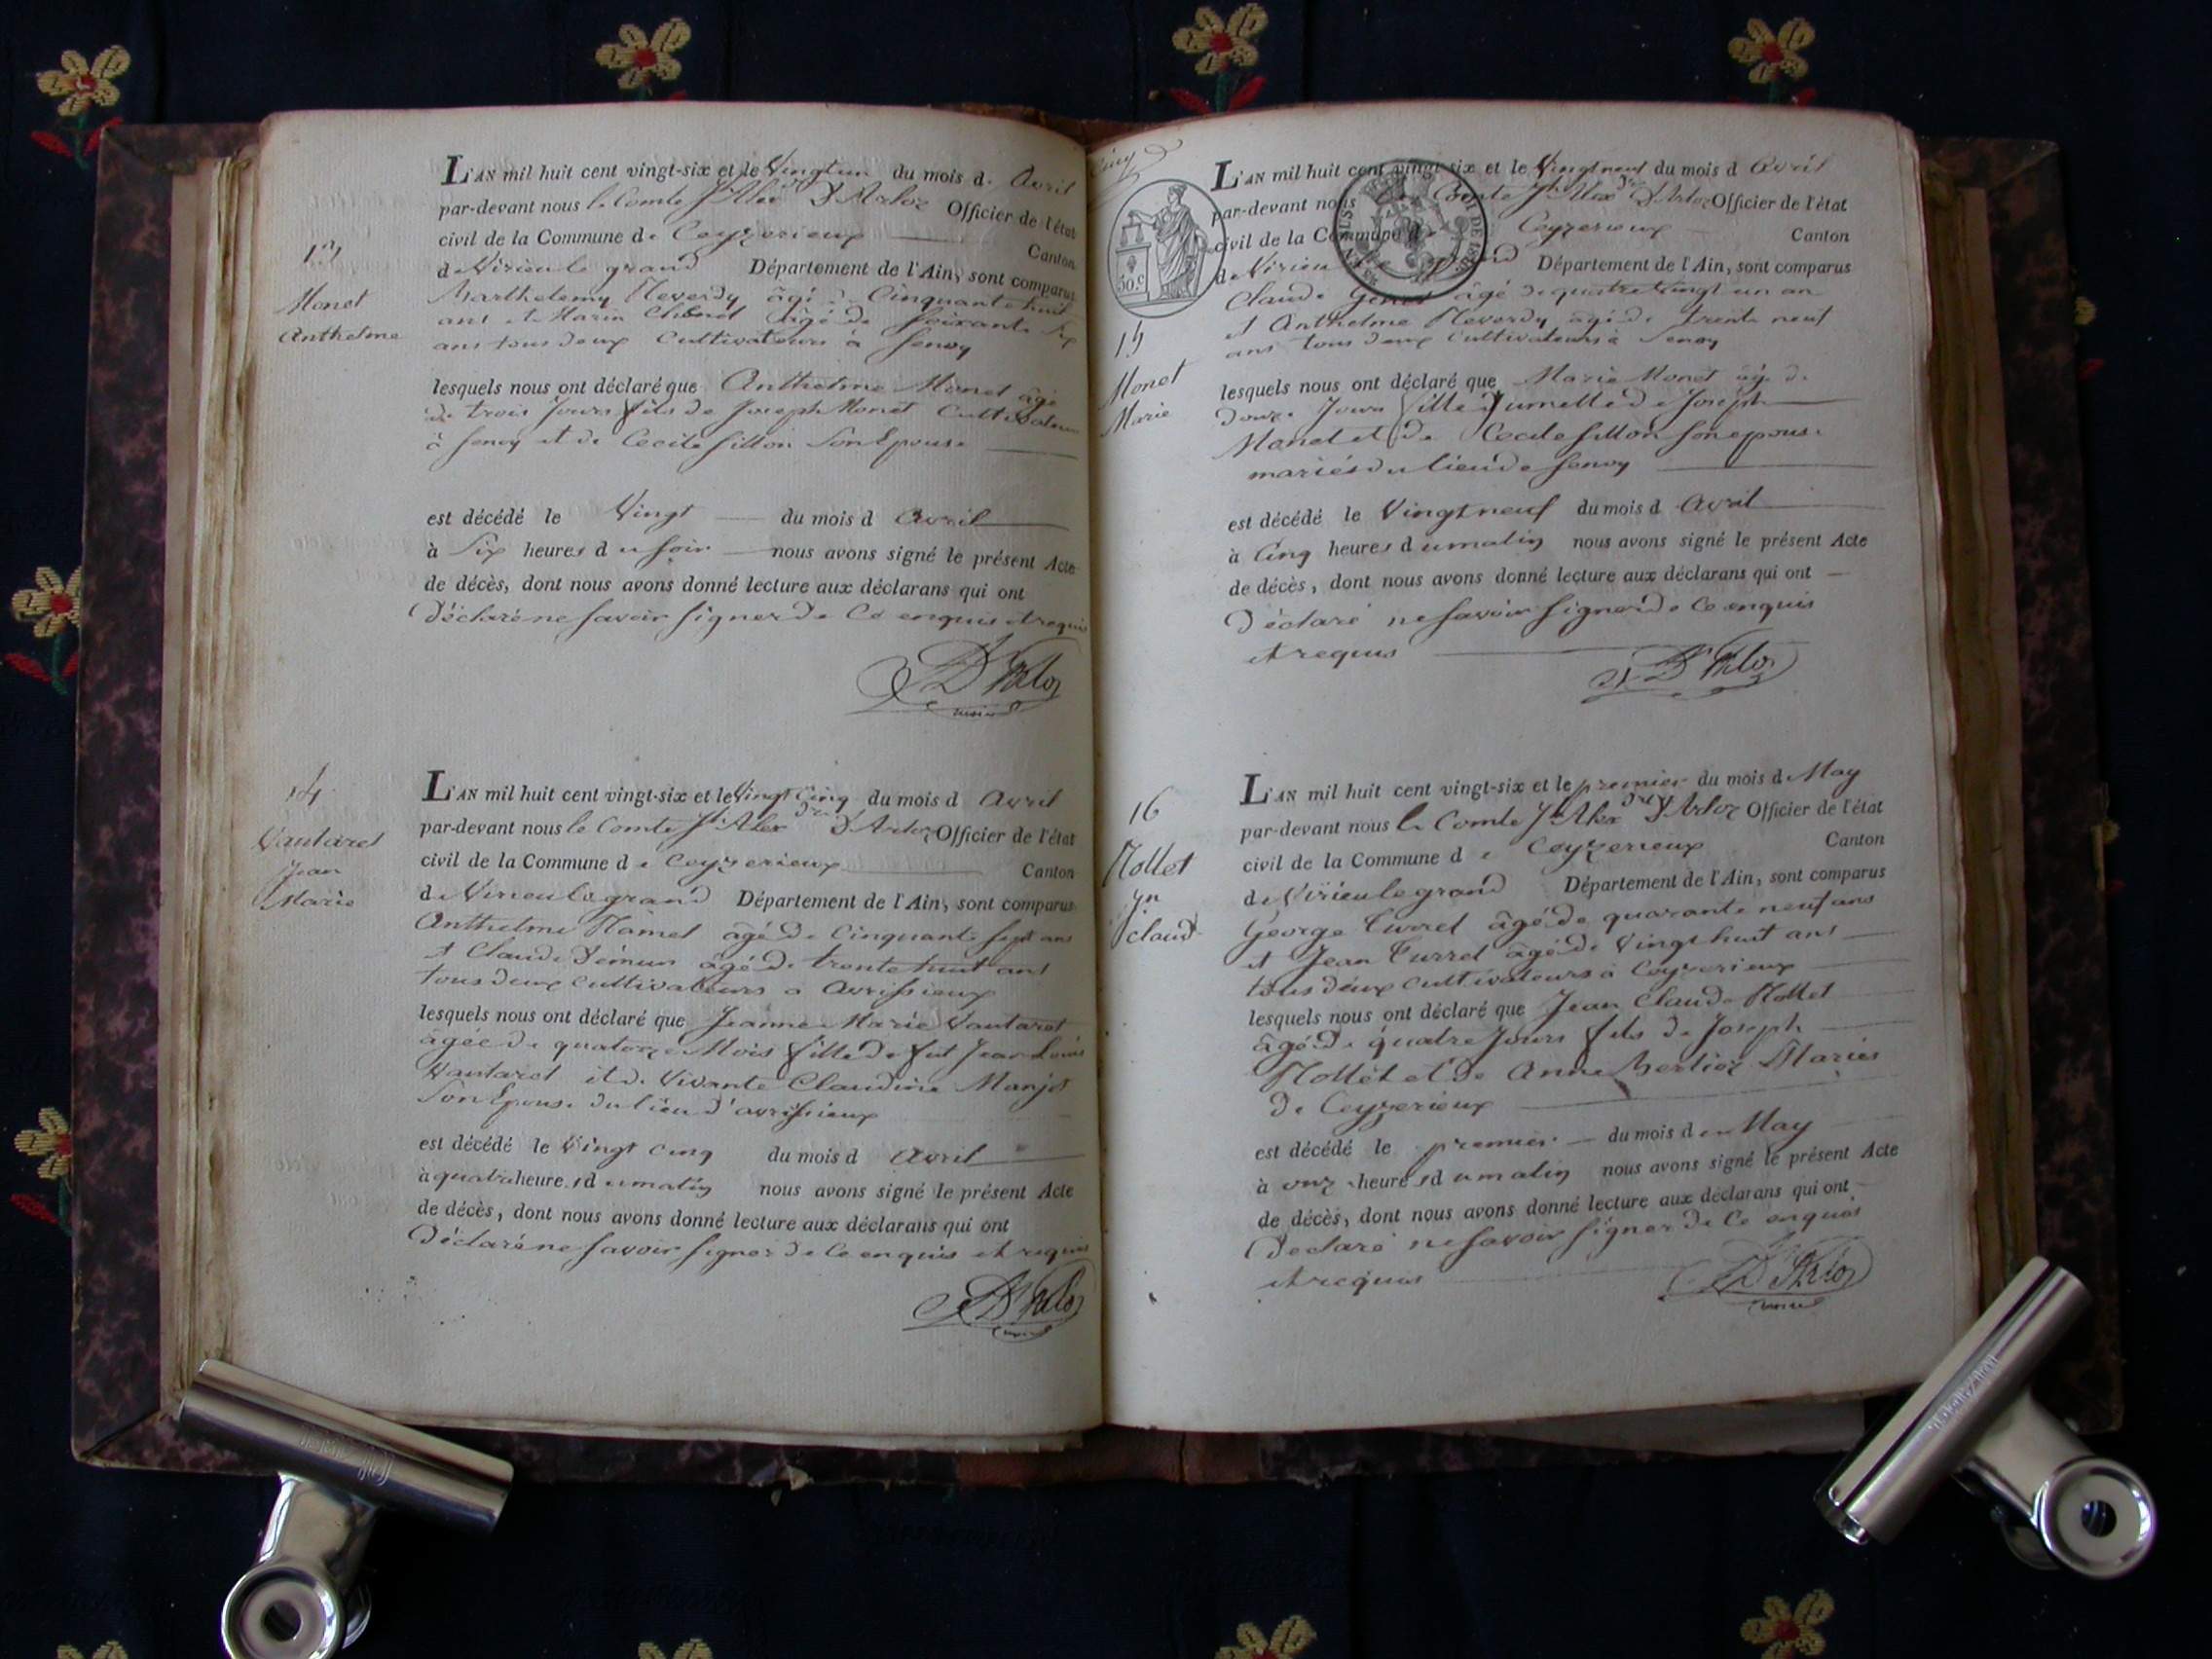 13
Monet
Anthelme
L'AN mil huit cent vingt-six et le Vingtun du mois d. Avril
par-devant nous le Comte J Alex D'Arloz Officier de l'état
civil de la Commune de Ceyzerieux Canton
de Virieu le grand Département de l'Ain, sont comparus
Barthelemy Reverdy âgé de Cinquante huit
ans et Marin âgé de soixante six
ans tous deux Cultivateurs a Senoy
lesquels nous ont déclaré que Anthelme Monet âgé
de trois Jours fils de Joseph Monet Cultivateur
à Senoy et de Cecile fillion Son Epouse
est décédé le Vingt du mois d Avril
à Six heures du soir nous avons signé le présent Acte
de décès, dont nous avons donné lecture aux déclarans qui ont
Déclaré ne savoir signer de Ce enquis et requis
D'Arloz
14
Vautaret
Jean
Marie
L'AN mil huit cent vingt-six et le Vingt Cinq du mois d Avril
par-devant nous le Comte J Alex dre D'Arloz Officier de l'état
civil de la Commune de Ceyzerieux Canton
de Virieu le grand Département de l'Ain, sont comparus
Anthelme Hamel âgé de Cinquante sept ans
et Claude Démun âgé de trente huit ans
tous deux cultivateurs a Avrissieux
lesquels nous ont déclaré que Jeanne Marie Vautaret
âgée de quatorze Mois fille de fut Jean Louis
Vautaret et de Vivante Claudine Manjot
Son Epouse du lieu d'avrissieux
est décédé le Vingt cinq du mois d Avril
à quatre heures du matin nous avons signé le présent Acte
de décès, dont nous avons donné lecture aux déclarans qui ont
Déclaré ne savoir signer de Ce enquis et requis
D'Arloz
30.c
15
Monet
Marie
L'AN mil huit cent vingt-six et le Vingt neuf du mois d Avril
par-devant nous Le Comte J Alex dre D'Arloz Officier de l'état
civil de la Commune de Ceyzerieux Canton
de Virieu le grand Département de l'Ain, sont comparus
Claude âgé de quatre Vingt un an
et Anthelme Reverdy âgé de trente neuf
ans tous deux Cultivateurs à Senoy
lesquels nous ont déclaré que Marie Monet âgé de
douze Jours fille Jumelle de Joseph
Monet et de Cecile fillion Son epouse
mariés du lieu de Senoy
est décédé le Vingt neuf du mois d Avril
à Cinq heures du matin nous avons signé le présent Acte
de décès, dont nous avons donné lecture aux déclarans qui ont
Déclaré ne savoir signer de Ce enquis
et requis
D'Arloz
16
Mollet
Jn
claud
L'AN mil huit cent vingt-six et le premier du mois d May
par-devant nous le Comte Jh Alex dre D'Arloz Officier de l'état
civil de la Commune de Ceyzerieux Canton
de Virieu le grand Département de l'Ain, sont comparus
George Turrel âgé de quarante neuf ans
et Jean Turrel âgé de Vingt huit ans
tous deux cultivateurs à Ceyzerieux
lesquels nous ont déclaré que Jean Claude Mollet
âgé de quatre Jours fils de Joseph
Mollet et de Anne Berlioz Mariés
de Ceyzerieux
est décédé le premier du mois d en May
à onze heures du matin nous avons signé le présent Acte
de décès, dont nous avons donné lecture aux déclarans qui ont
Declaré ne savoir signer de Ce enquis
et requis
D'Arloz